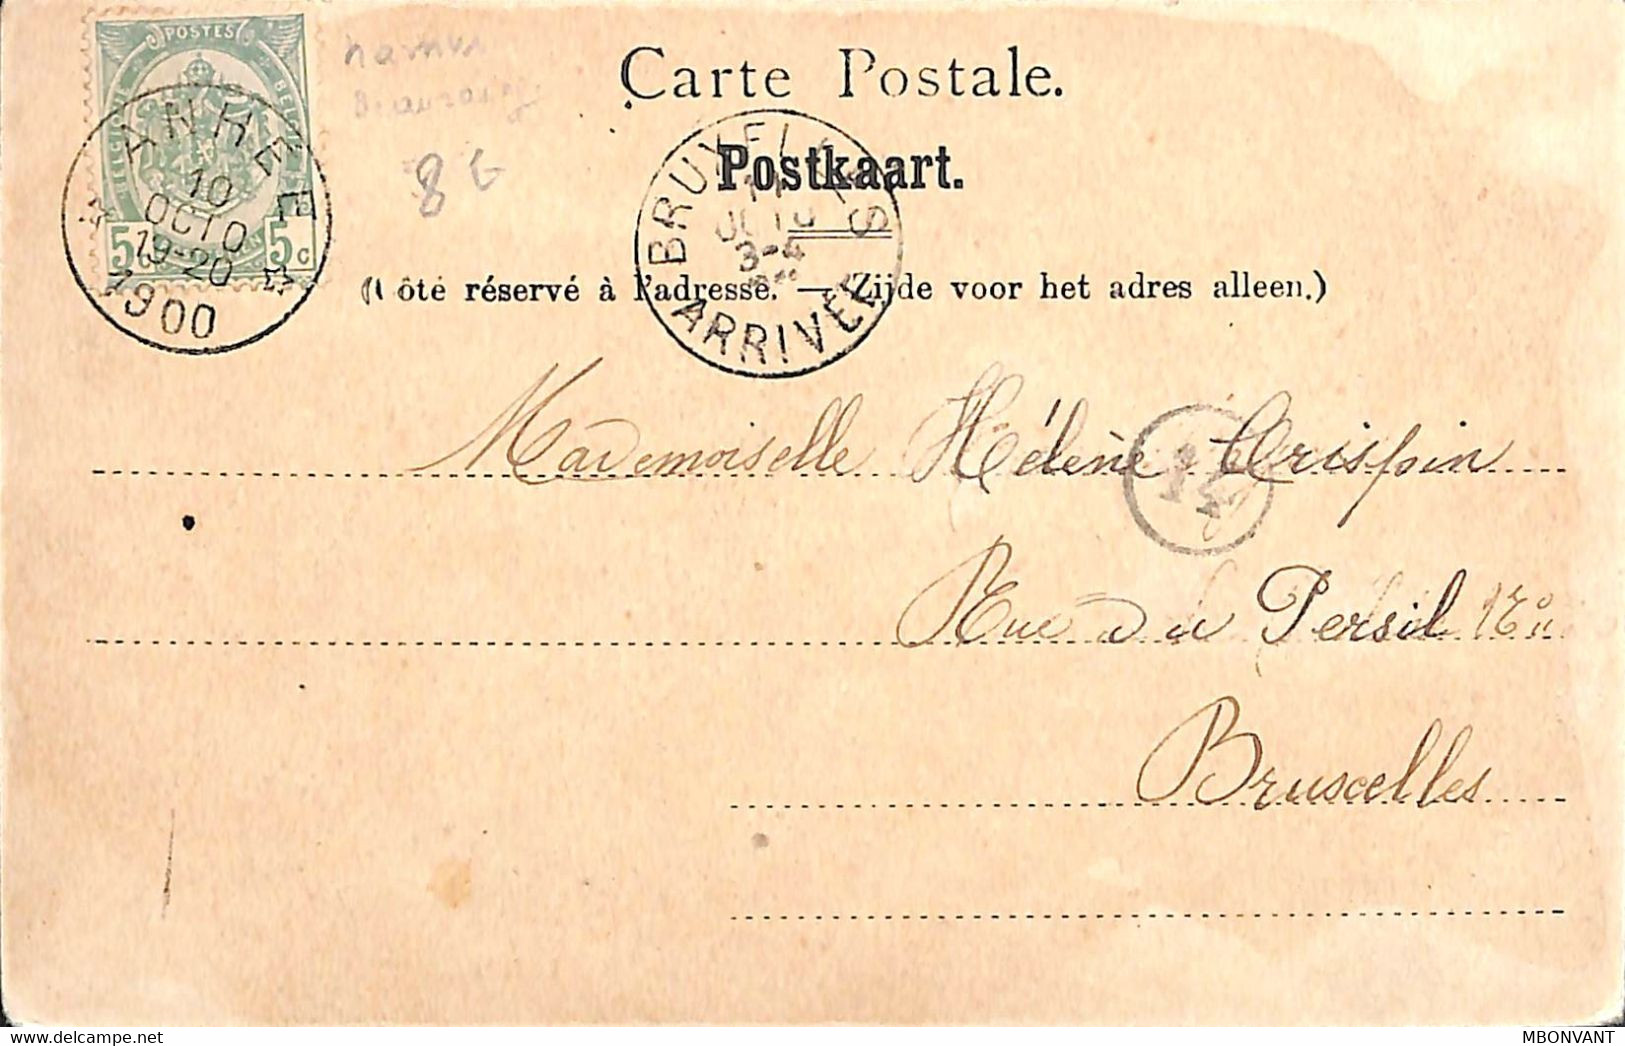 POSTES
BELGIQUE
5c 5c
ANHEE
10
OCTO
19-20
1900
8 G
Carte Postale.
Postkaart.
BRUXELLES
11
3-4
ARRIVEE
(Côté réservé à l'adresse. — (Zijde voor het adres alleen.)
Mademoiselle Hélène Crispin
Rue du Persil
Bruxelles
delcampe.net
MBONVANT